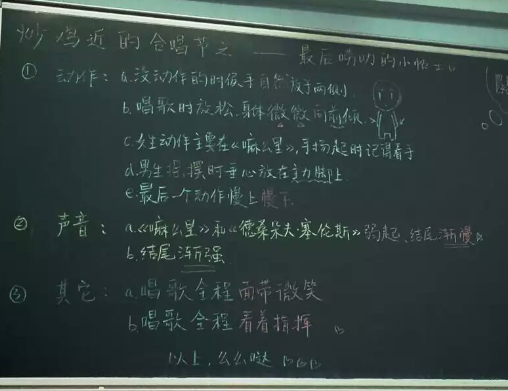 炒鸡近的合唱节之——最后唠叨的小怅
① 动作: a.没动作的时候手自然放于两侧
b.唱歌时放松,身体微微向前倾
c.女生动作主要在《嘛么里》,手扬起时记得看手
d.男生 摆时重心放在主力脚上
e.最后一个动作慢上慢下
② 声音: a.《嘛么里》和《德桑朵夫·塞伦斯》强起、结尾渐慢
b.结尾渐强
③ 其它: a.唱歌全程面带微笑
b.唱歌全程看着指挥
以上,么么哒